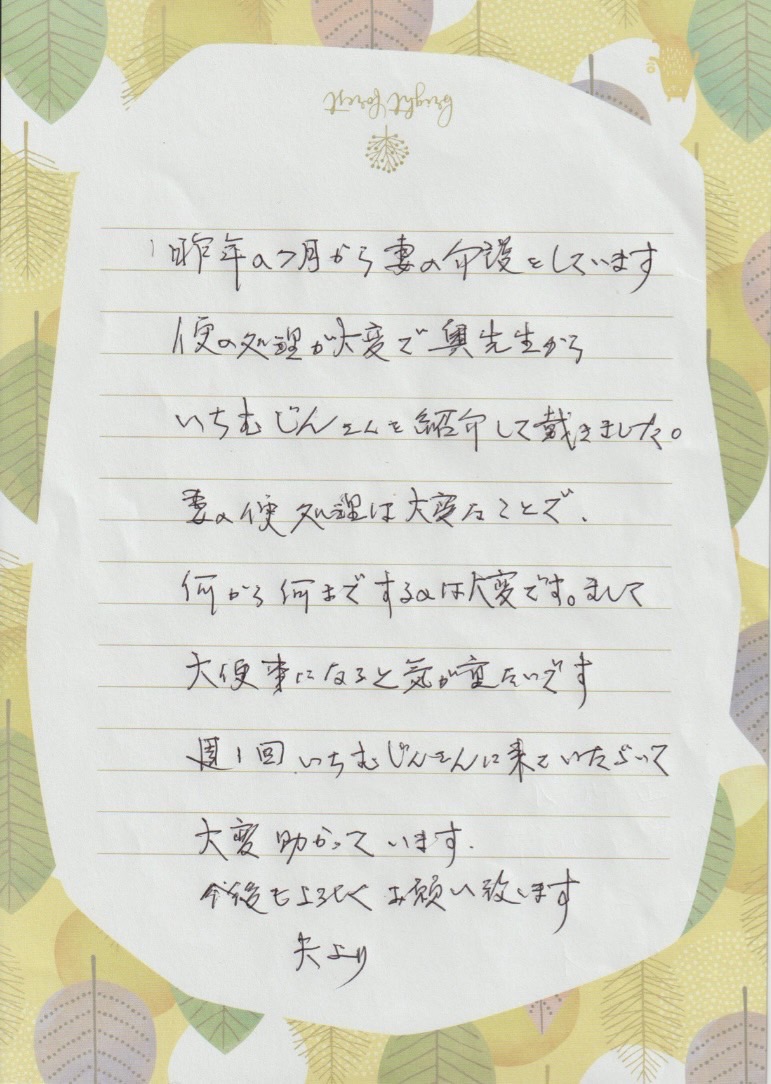 bright forest
昨年の7月から妻の介護をしています
便の処理が大変で奥先生から
いちむじんさんを紹介して戴きました。
妻の便処理は大変なことで、
何から何までするのは大変です。まして
大便事になると気が重たいです
週1回、いちむじんさんに来ていただいて
大変助かっています。
今後もよろしくお願い致します
夫より